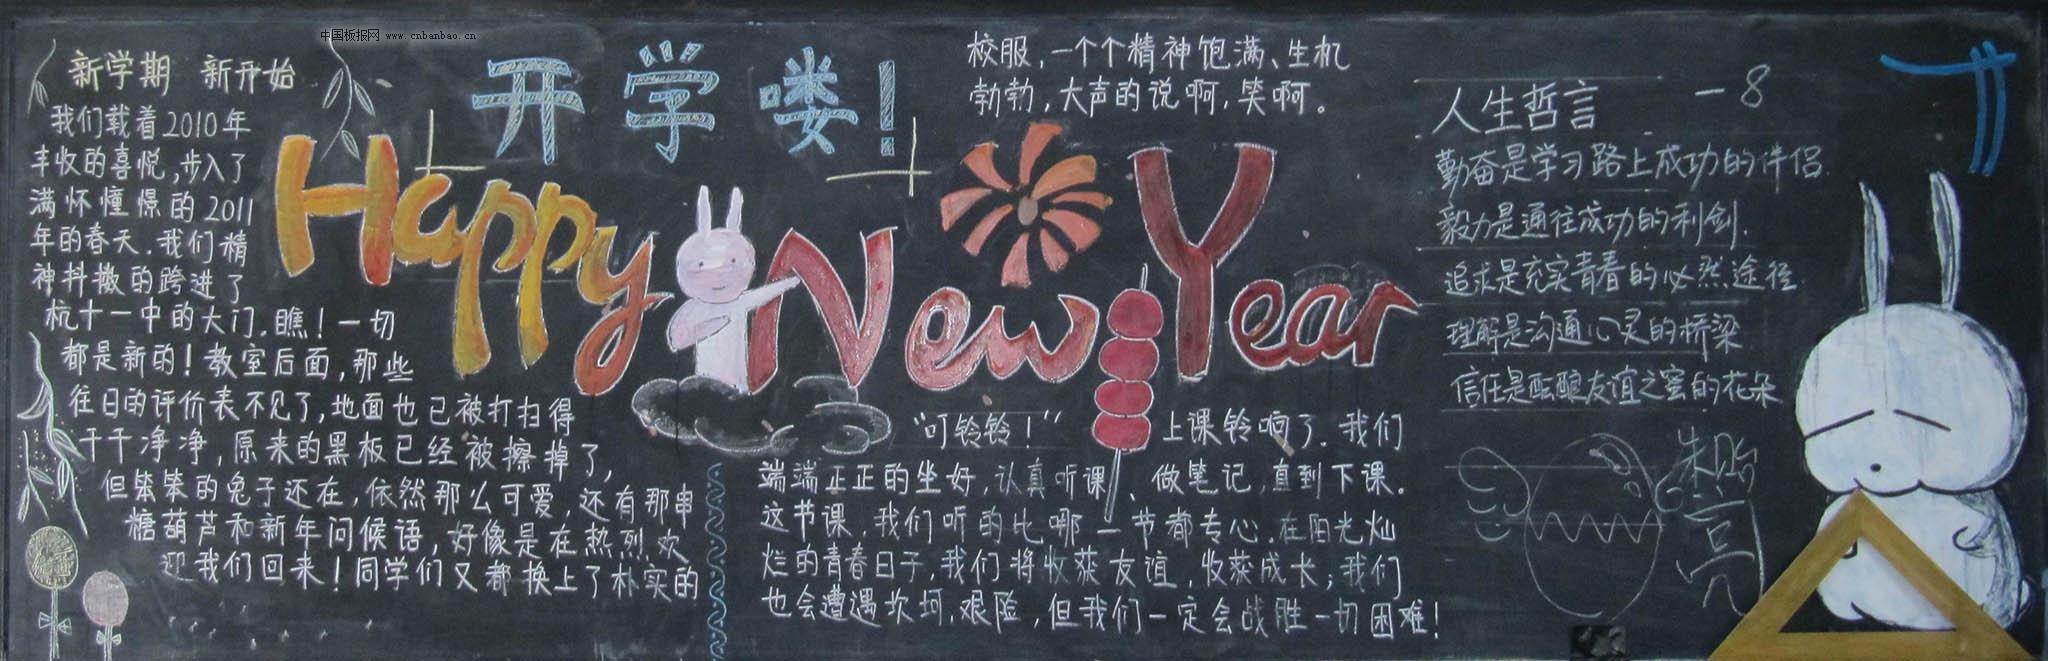 中国板报网 www.cnbanbao.cn
开学喽!
Happy New Year
新学期 新开始
我们载着2010年
丰收的喜悦,步入了
满怀憧憬的2011
年的春天.我们精
神抖擞的跨进了
杭十一中的大门.瞧!一切
都是新的!教室后面,那些
往日的评价表不见了,地面也已被打扫得
干干净净,原来的黑板已经被擦掉了,
但笨笨的兔子还在,依然那么可爱,还有那串
糖葫芦和新年问候语,好像是在热烈欢
迎我们回来!同学们又都换上了朴实的
校服,一个个精神饱满、生机
勃勃,大声的说啊,笑啊。
"叮铃铃!" 上课铃响了.我们
端端正正的坐好,认真听课、做笔记,直到下课。
这节课,我们听的比哪一节都专心.在阳光灿
烂的青春日子,我们将收获友谊,收获成长;我们
也会遭遇坎坷,艰险,但我们一定会战胜一切困难!
人生哲言 一8
勤奋是学习路上成功的伴侣.
毅力是通往成功的利剑.
追求是充实青春的必然途径.
理解是沟通心灵的桥梁
信任是酝酿友谊之蜜的花朵